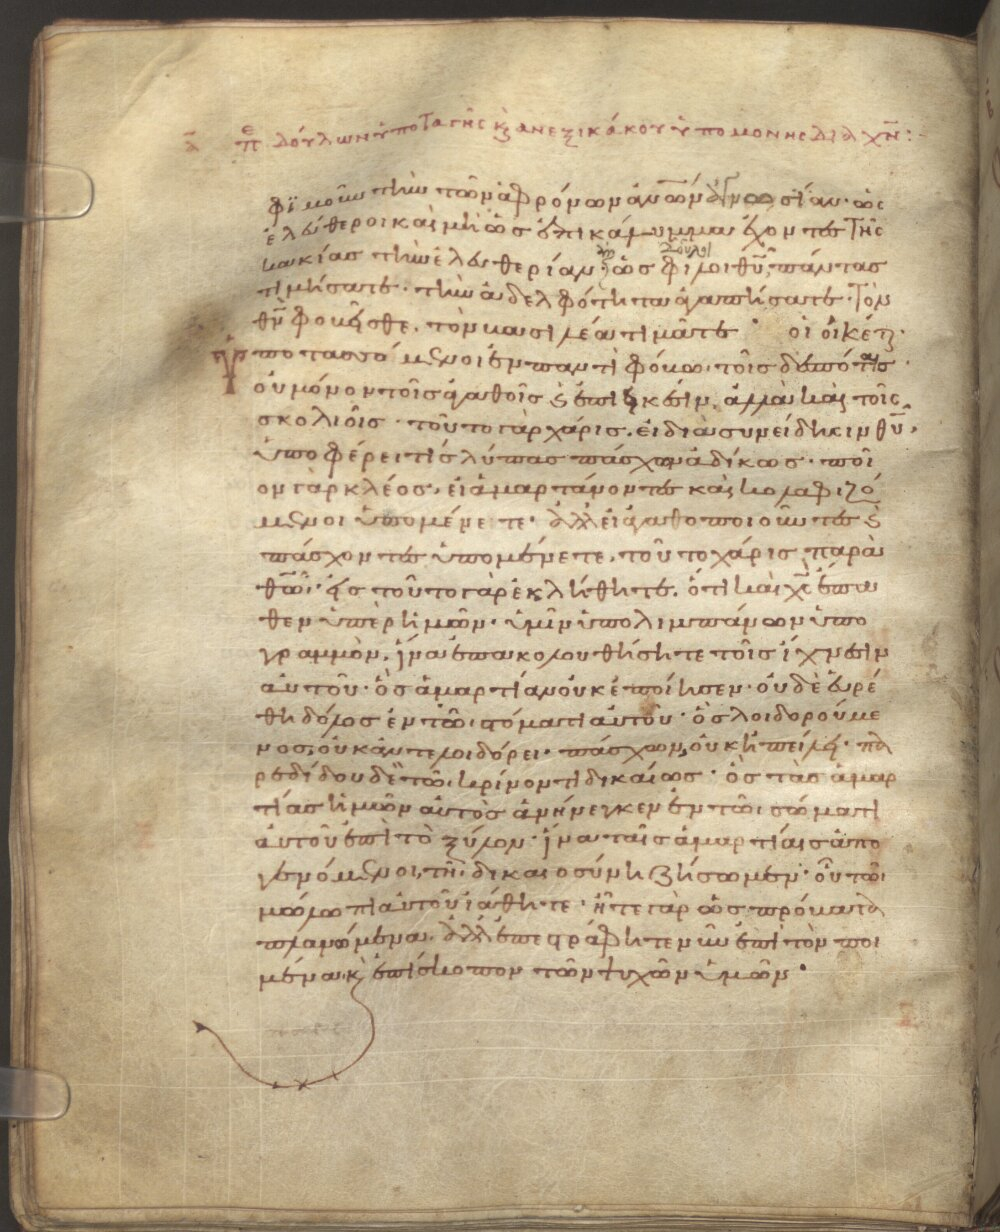 ᾱ πε δούλων ὑποταγῆς κ̀ ἀνεξικάκου ὑπομονῆς διὰ χ̄ν:
φιμοῦν τὴν τῶν ἀφρόνων ἀν̅ω̅ν ἀγνωσίαν· ὡς
ἐλεύθεροι καὶ μὴ ὡς ἐπικάλυμμα ἔχοντες τῆς
κακίας τὴν ἐλευθερίαν ἀλλ ὡς δοῦλοι φίλοι θ̅υ̅· πάντας
τιμήσατε· τὴν ἀδελφότητα ἀγαπήσατε· τὸν
θ̅ν̅ φοβεῖσθε, τὸν βασιλέα τιμᾶτε· οἱ οἰκέτ
ὑποτασσόμενοι ἐν παντὶ φόβω· τοῖς δεσπόταις
οὐ μόνον τοῖς ἀγαθοῖς κ̀ ἐπιεικέσιν, ἀλλὰ καὶ τοῖς
σκολιοῖς· τοῦτο γὰρ χάρις, εἰ διὰ συνείδησιν θ̅υ̅,
ὑποφέρει τίς λύπας πάσχων ἀδίκως· ποῖ
ον γὰρ κλέος, εἰ ἁμαρτάνοντες καὶ κολαφιζό
μενοι ὑπομένετε· ἀλλ εἰ ἀγαθοποιοῦντες κ̀
πάσχοντες ὑπομένετε, τοῦτο χάρις παρὰ
θ̅ω̅· εἰς τοῦτο γὰρ ἐκλήθητε, ὅτι καὶ χ̅ς̅ ἔπα
θεν ὑπὲρ ἡμῶν· ὑμῖν ὑπολιμπάνων ὑπο
γραμμὸν, ἵνα ἐπακολουθήσητε τοῖς ἴχνεσιν
αὐτοῦ· ὃς ἁμαρτίαν οὐκ ἐποίησεν· οὐδὲ εὑρέ
θη δόλος ἐν τῶ στόματι αὐτοῦ· ὃς λοιδορούμε
νος, οὐκ ἀντελοιδόρει· πάσχων, οὐκ ἠπείλει· πα
ρεδίδου δὲ τῶ κρίνοντι δικαίως· ὃς τὰς ἁμαρ
τίας ἡμῶν αὐτὸς ἀνήνεγκεν ἐν τῶ σώματι
αὐτοῦ ἐπὶ τὸ ξύλον· ἵνα ταῖς ἁμαρτίαις ἀπο
γενόμενοι, τῆ δικαιοσύνη ζήσωμεν· οὗ τῶ
μώλωπι αὐτοῦ ἰάθητε· ἦτε γὰρ ὡς πρόβατα
πλανώμενα, ἀλλ ἐπεστράφητε νῦν ἐπὶ τὸν ποι
μένα κ̀ ἐπίσκοπον τῶν ψυχῶν ὑμῶν·